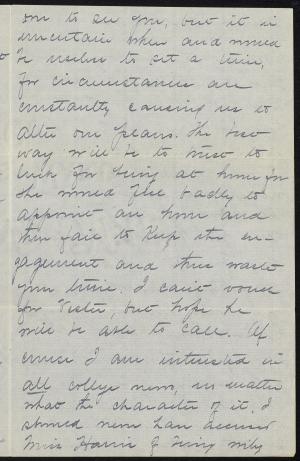 son to see you, but it is
uncertain when and would
be useless to set a time,
for circumstances are
constantly causing us to
alter our plans. The best
way will be to trust to
luck for being at home for
she would feel badly to
appoint an hour and
then fail to keep the en-
gagement and thus waste
your time. I can't vouch
for Victor, but hope he
will be able to call. Of
course I am interested in
all college news, no matter
what the character of it. I
should never have accused
Miss Harris of being wily